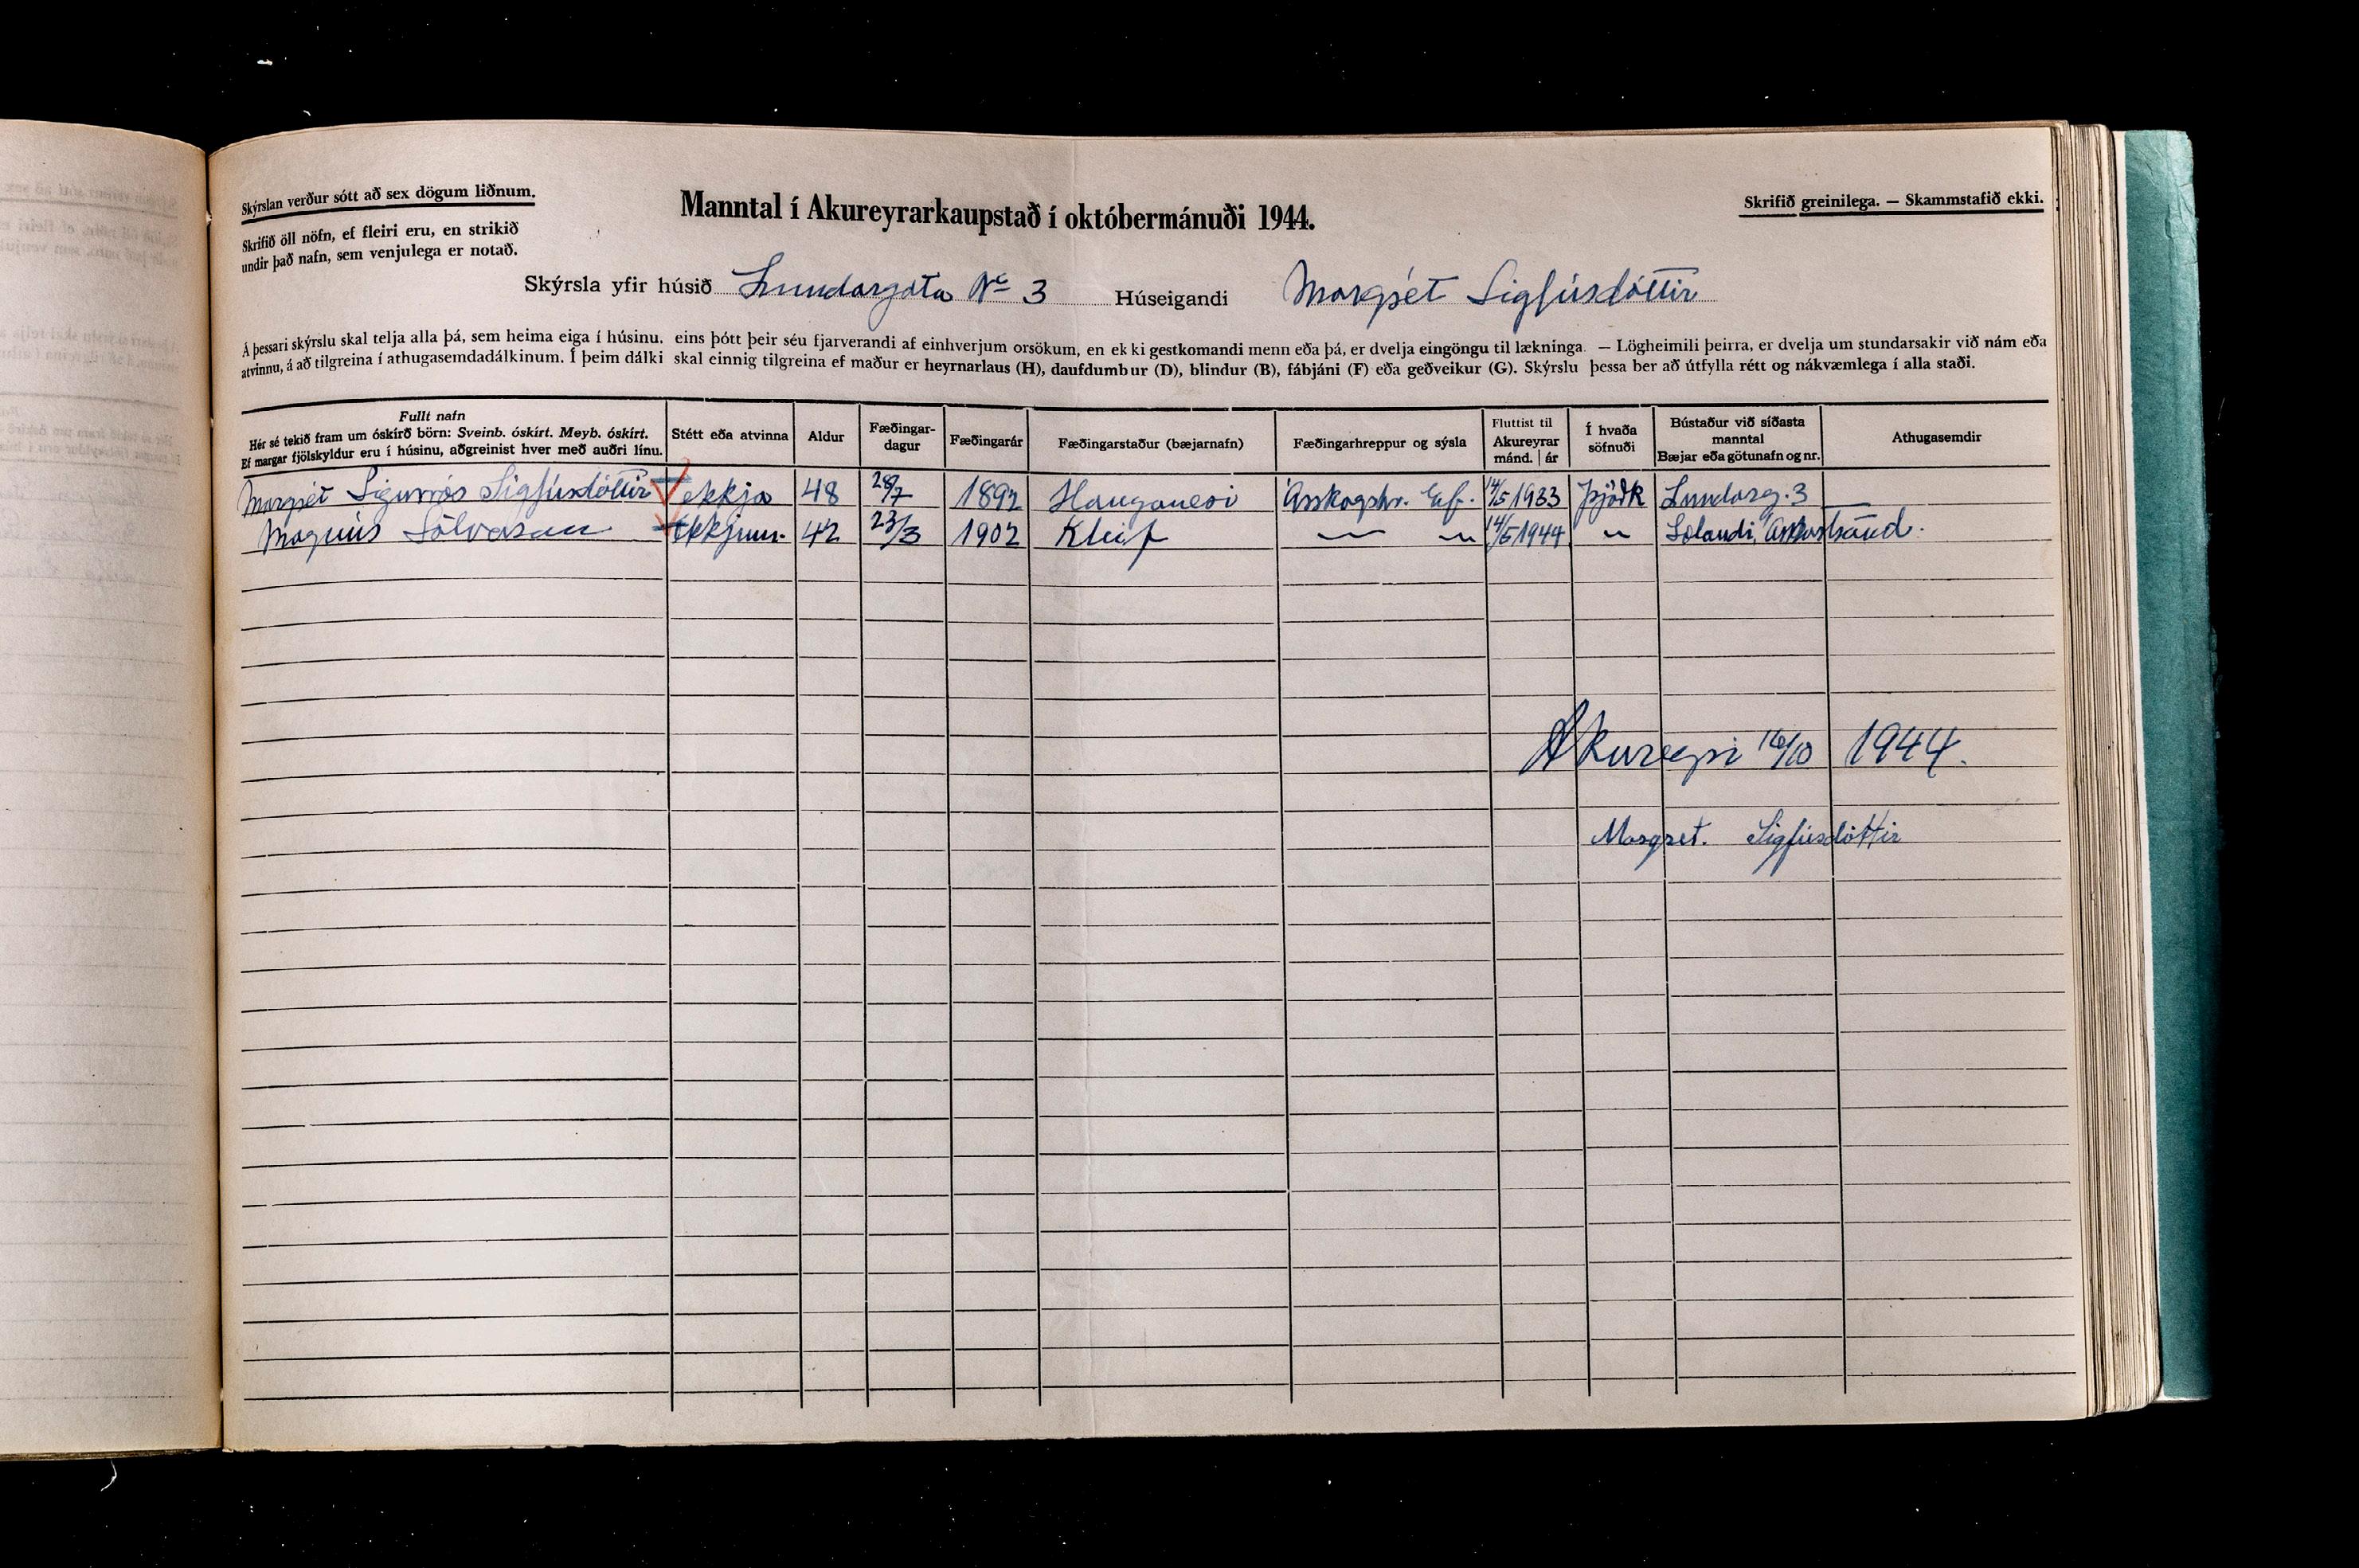 Skýrslan verður sótt að sex dögum liðnum.
Skrifið öll nöfn, ef fleiri eru, en strikið
undir það nafn, sem venjulega er notað.
Manntal í Akureyrarkaupstað í októbermánuði 1944.
Skrifið greinilega. — Skammstafið ekki.
Skýrsla yfir húsið Lundargata No 3 Húseigandi Margrét Sigfúsdóttir
Á þessari skýrslu skal telja alla þá, sem heima eiga í húsinu, eins þótt þeir séu fjarverandi af einhverjum orsökum, en ekki gestkomandi menn eða þá, er dvelja eingöngu til lækninga. — Lögheimili þeirra, er dvelja um stundarsakir við nám eða
atvinnu, á að tilgreina í athugasemdadálkinum. Í þeim dálki skal einnig tilgreina ef maður er heyrnarlaus (H), daufdumbur (D), blindur (B), fábjáni (F) eða geðveikur (G). Skýrslu þessa ber að útfylla rétt og nákvæmlega í alla staði.
Fullt nafn
Hér sé tekið fram um óskírð börn: Sveinb. óskírt. Meyb. óskírt.
Ef margar fjölskyldur eru í húsinu, aðgreinist hver með auðri línu.
Stétt eða atvinna
Aldur
Fæðingar-
dagur
Fæðingarár
Fæðingarstaður (bæjarnafn)
Fæðingarhreppur og sýsla
Fluttist til
Akureyrar
mánd. | ár
Í hvaða
söfnuði
Bústaður við síðasta
manntal
Bæjar eða götunafn og nr.
Athugasemdir
Margrét Sigurrós Sigfúsdóttir ekkja 48 28/7 1892 Hauganesi Árskógshr. Eyf. 14/5 1933 Þjóðk Lundarg. 3 —
Magnús Sölvason Ekkjum. 42 23/3 1902 Kleif — " 14/5 1944 " Sólandi, Árskóstrand.
Akureyri 16/10 1944.
Margret. Sigfúsdóttir